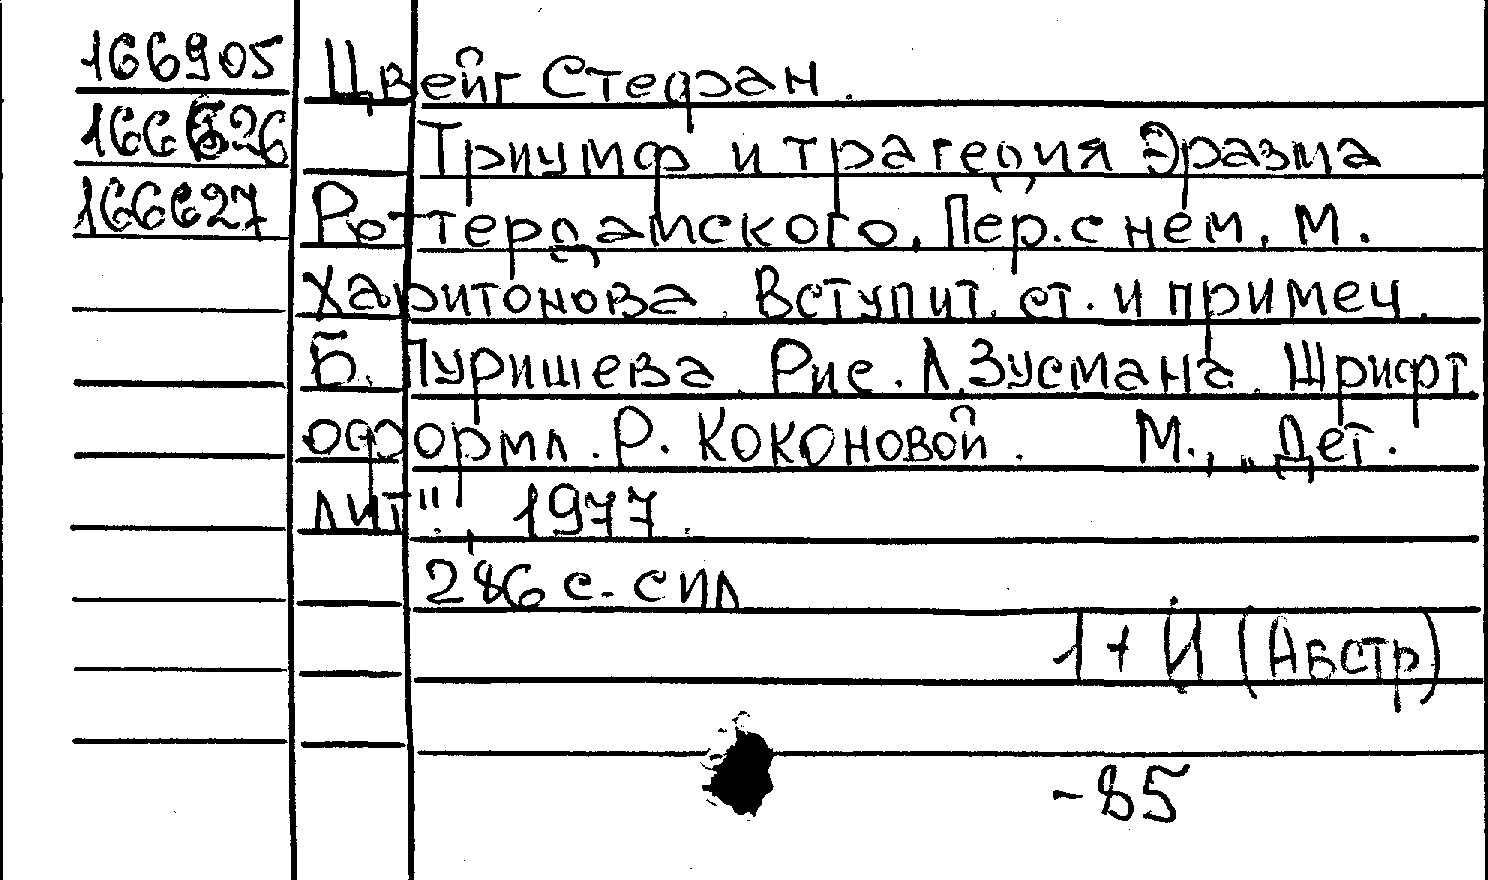 166905 Цвейг Стефан.
166626 Триумф и трагедия Эразма
166627 Роттердамского. Пер. с нем. М.
Харитонова. Вступит. ст. и примеч.
Б. Пуришева. Рис. Л. Зусмана. Шрифт.
оформл. Р. Коконовой. М., „Дет.
лит"., 1977.
286 с. с ил
1 + И (Австр)
-85